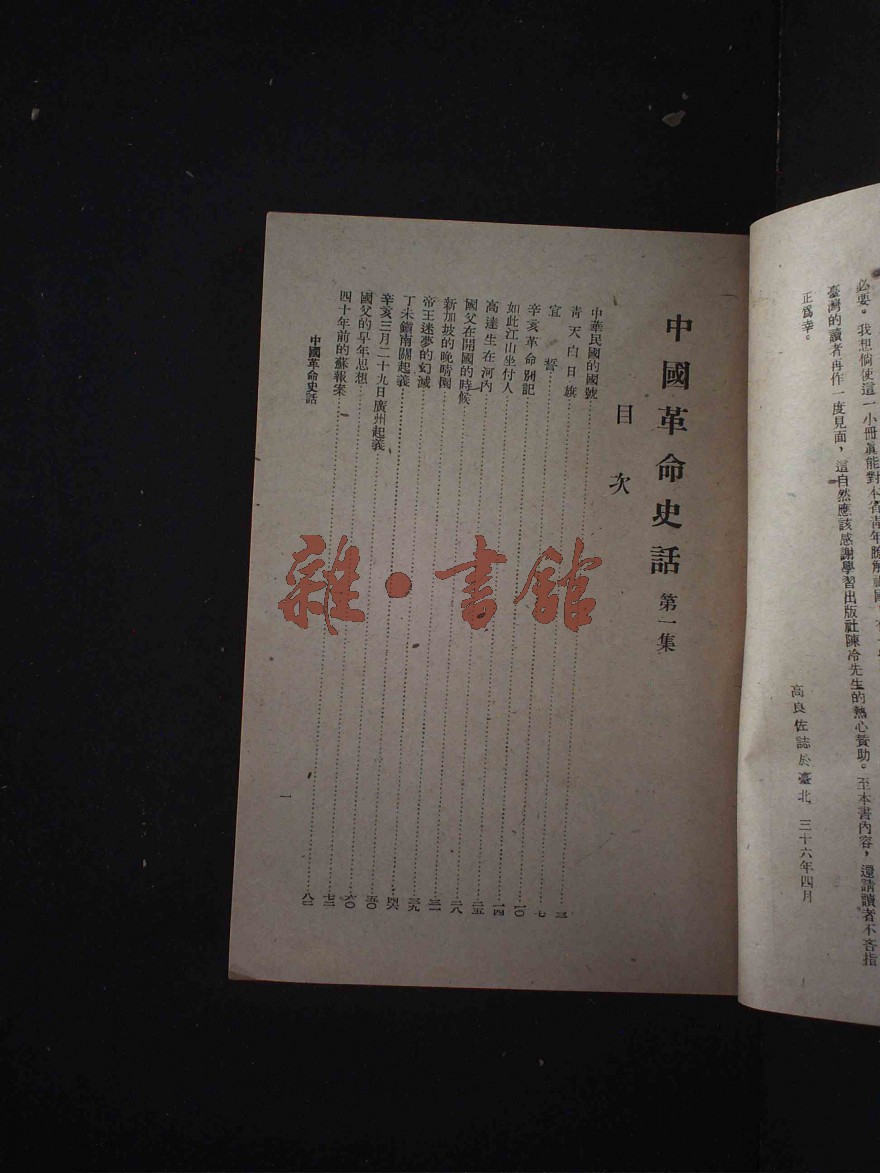 必要。我想倘使這一小冊眞能對本省青年瞭解祖國，有一
臺灣的讀者再作一度見面，這自然應該感謝學習出版社陳冷先生的熱心贊助。至本書內容，還請讀者不吝指
正爲幸。
高良佐誌於臺北 三十六年四月
中國革命史話 第一集
目次
中華民國的國號……三
青天白日旗……七
宣誓……一〇
辛亥革命別記……一四
如此江山坐付人……二五
高達生在河內……二八
國父在開國的時候……三二
新加坡的晚晴園……三九
帝王迷夢的幻滅……四六
丁未鎮南關起義……五〇
辛亥三月二十九日廣州起義……六〇
國父的早年思想……七三
四十年前的蘇報案……八二
中國革命史話
一
雜·書館